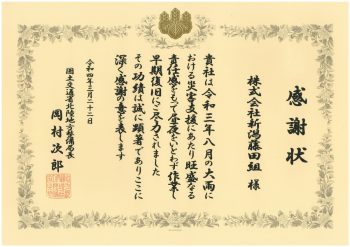 感謝状
株式会社新潟藤田組 様
貴社は令和三年八月の大雨に
おける災害支援にあたり旺盛なる
責任感をもって昼夜をいとわず作業し
早期復旧に尽力されました
その功績は誠に顕著でありここに
深く感謝の意を表します
令和四年三月二十二日
国土交通省北陸地方整備局長
岡村次郎